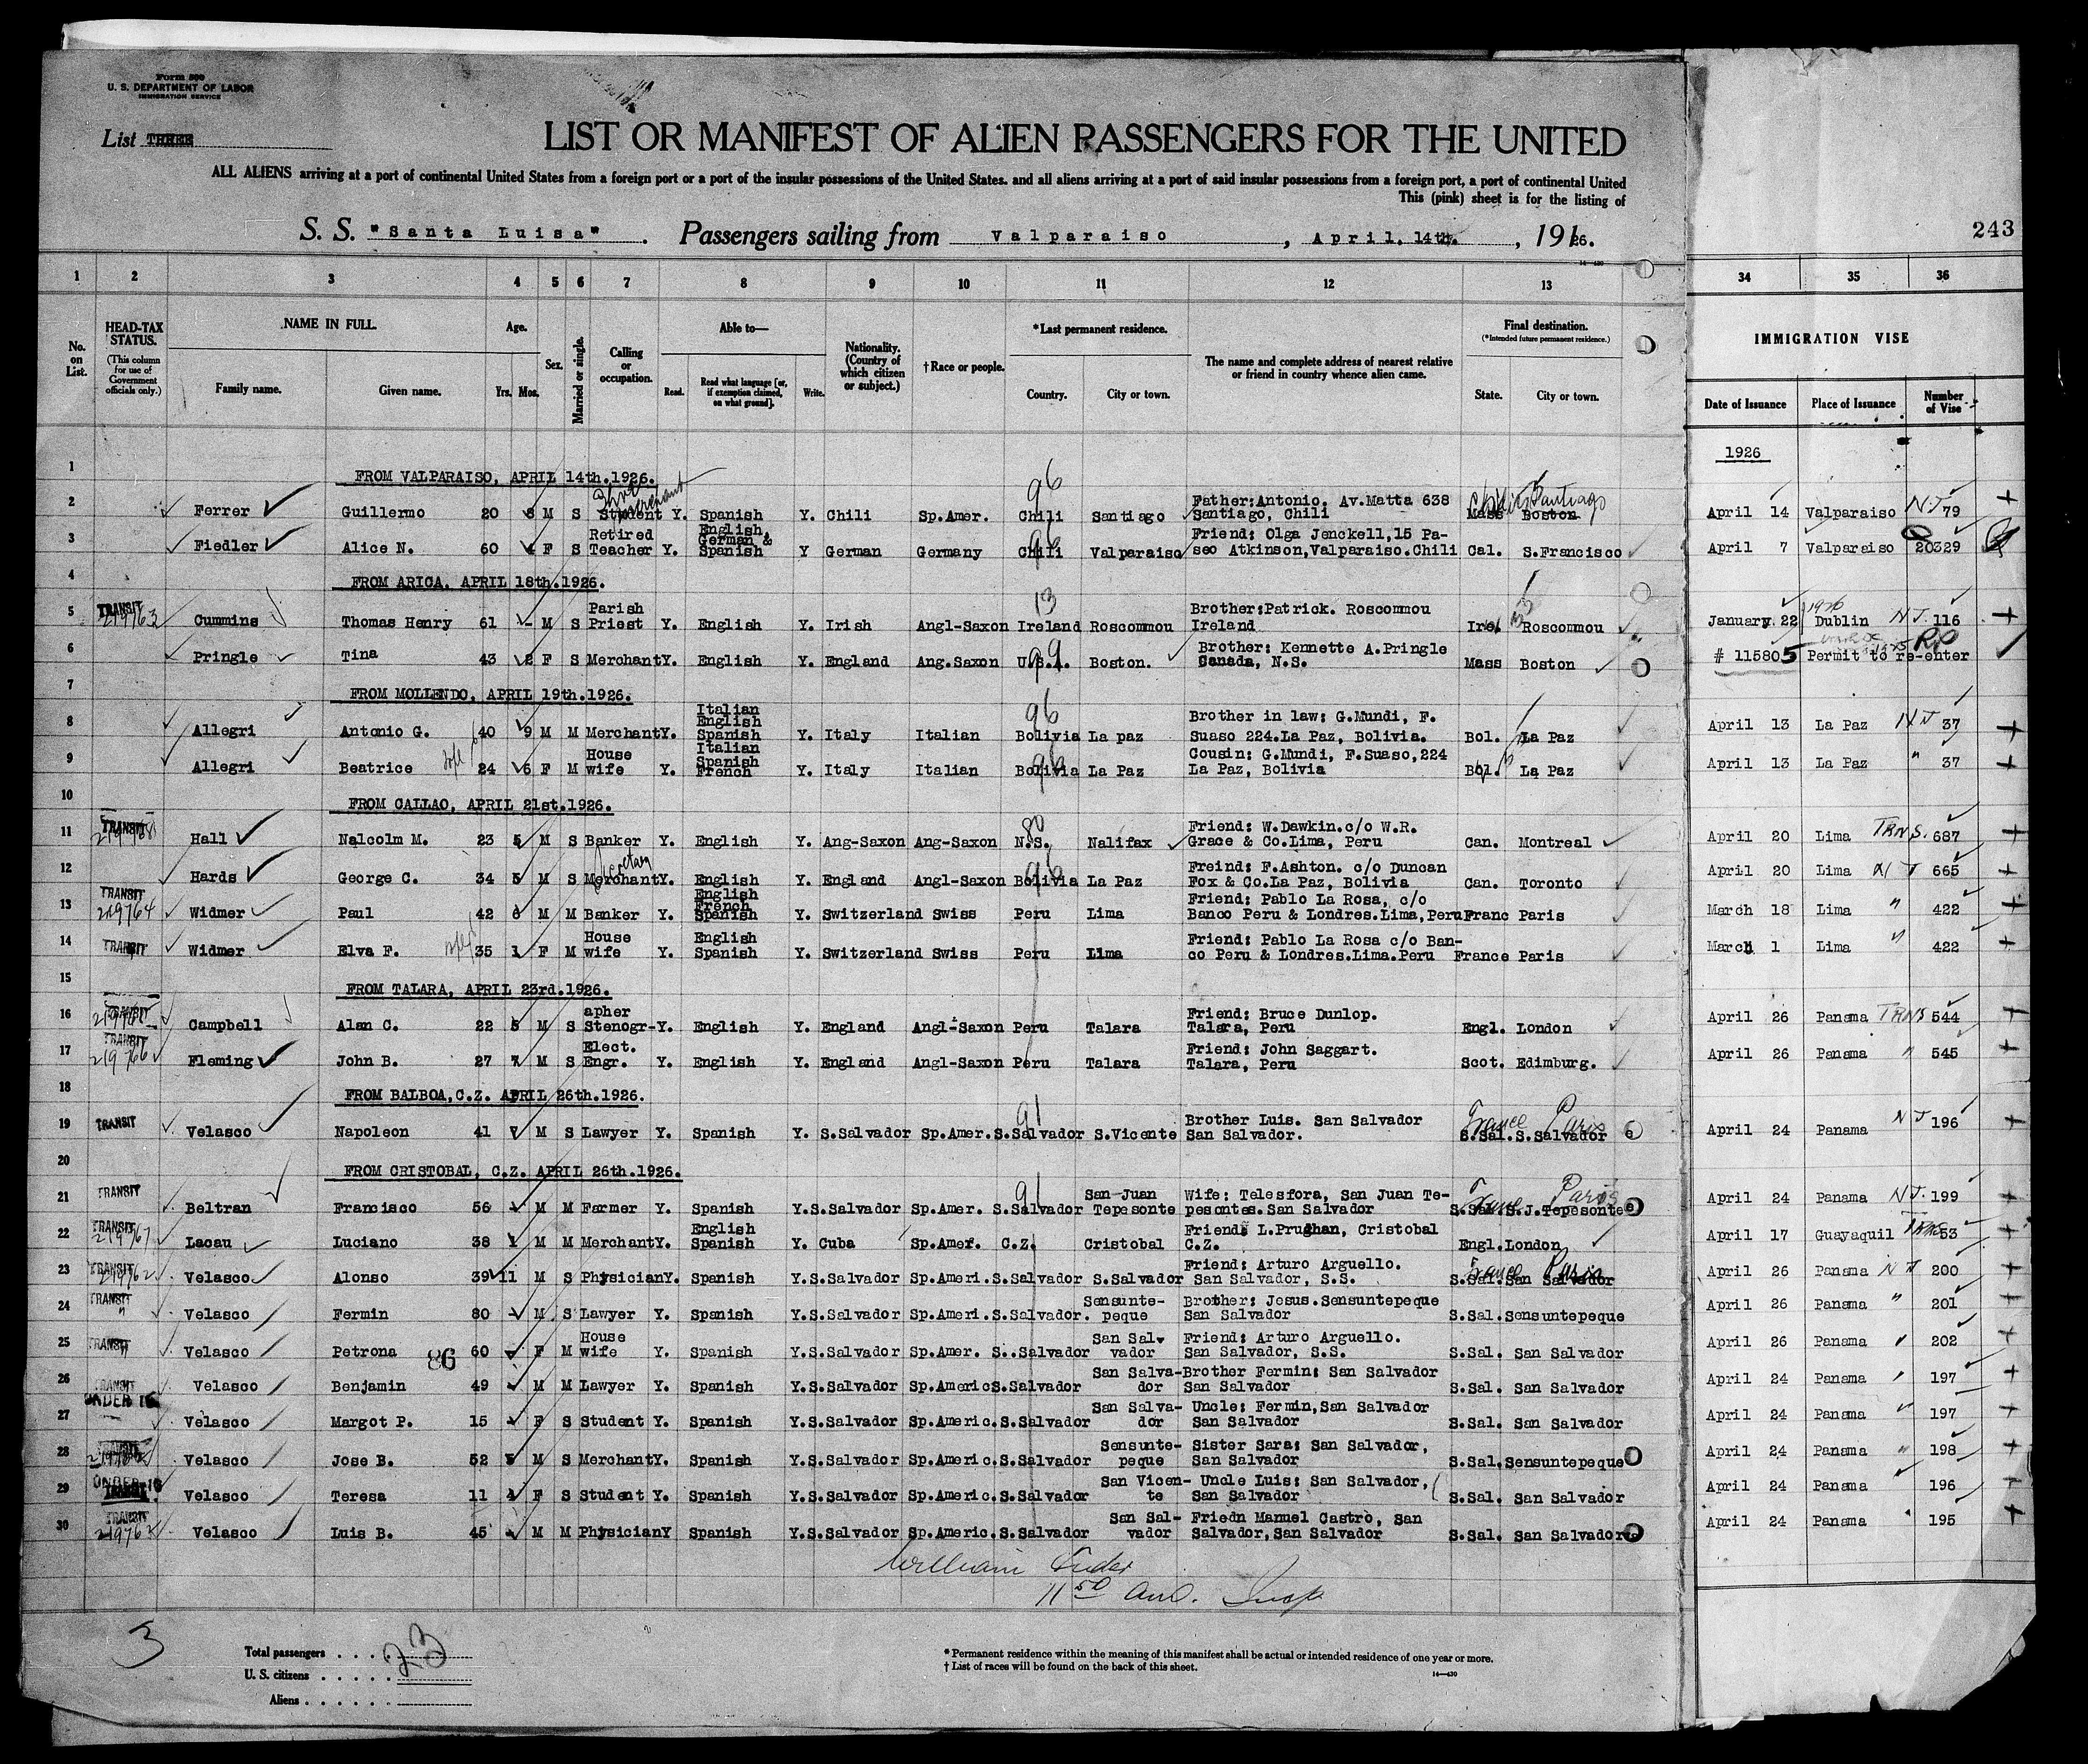 Form 500
U. S. DEPARTMENT OF LABOR
IMMIGRATION SERVICE
List THREE
LIST OR MANIFEST OF ALIEN PASSENGERS FOR THE UNITED
ALL ALIENS arriving at a port of continental United States from a foreign port or a port of the insular possessions of the United States, and all aliens arriving at a port of said insular possessions from a foreign port, a port of continental United
This (pink) sheet is for the listing of
S. S. "Santa Luisa" . Passengers sailing from Valparaiso , April, 14th. , 1926.
243
1 2 3 4 5 6 7 8 9 10 11 12 13 34 35 36
No. on List.
HEAD-TAX STATUS. (This column for use of Government officials only.)
NAME IN FULL.
Family name. Given name.
Age. Yrs. Mos.
Sex.
Married or single.
Calling or occupation.
Able to— Read. Read what language [or, if exemption claimed, on what ground]. Write.
Nationality. (Country of which citizen or subject.)
†Race or people.
*Last permanent residence. Country. City or town.
The name and complete address of nearest relative or friend in country whence alien came.
Final destination. (*Intended future permanent residence.) State. City or town.
IMMIGRATION VISE
Date of Issuance Place of Issuance Number of Vise
1926
1 FROM VALPARAISO, APRIL 14th.1926.
2 Ferrer Guillermo 20 8 M S Student merchant Y. Spanish Y. Chili Sp.Amer. Chili 96 Santiago Father:Antonio. Av.Matta 638 Santiago, Chili Mass Boston Santiago April 14 Valparaiso 79
3 Fiedler Alice N. 60 4 F S Retired Teacher Y. English, German & Spanish Y German Germany Chili Valparaiso Friend: Olga Jenckell,15 Paseo Atkinson,Valparaiso.Chili Cal. S.Francisco April 7 Valparaiso 20329
4 FROM ARICA, APRIL 18th.1926.
5 TRANSIT 219763 Cummins Thomas Henry 61 - M S Parish Priest Y. English Y. Irish Angl-Saxon Ireland 13 Roscommou Brother:Patrick. Roscommou Ireland Irel Roscommou January 22 1926 Dublin 116
6 Pringle Tina 43 2 F S Merchant Y. English Y. England Ang.Saxon U.S.A. 99 Boston. Brother: Kennette A.Pringle Canada, N.S. Mass Boston # 115805 Permit to re-enter
7 FROM MOLLENDO, APRIL 19th.1926.
8 Allegri Antonio G. 40 9 M M Merchant Y. Italian English Spanish Y. Italy Italian Bolivia 96 La paz Brother in law: G.Mundi, F. Suaso 224.La Paz, Bolivia. Bol. La Paz April 13 La Paz 37
9 Allegri Beatrice 24 6 F M House wife Y. Italian Spanish French Y. Italy Italian Bolivia 96 La Paz Cousin: G.Mundi, F.Suaso,224 La Paz, Bolivia Bol. La Paz April 13 La Paz " 37
10 FROM CALLAO, APRIL 21st.1926.
11 TRANSIT Hall Malcolm M. 23 5 M S Banker Y. English Y. Ang-Saxon Ang-Saxon N.S. 80 Nalifax Friend: W.Dawkin.c/o W.R. Grace & Co.Lima, Peru Can. Montreal April 20 Lima TRNS. 687
12 Hards George C. 34 5 M S Merchant Secretary Y. English Y. England Angl-Saxon Bolivia 96 La Paz Freind: F.Ashton. c/o Duncan Fox & Co.La Paz, Bolivia Can. Toronto April 20 Lima 665
13 TRANSIT 219764 Widmer Paul 42 6 M M Banker Y. English French Spanish Y. Switzerland Swiss Peru Lima Friend: Pablo La Rosa, c/o Banco Peru & Londres.Lima,Peru Franc Paris March 18 Lima " 422
14 TRANSIT Widmer Elva F. 35 1 F M House wife Y. English Spanish Y. Switzerland Swiss Peru Lima Friend: Pablo La Rosa c/o Banco Peru & Londres.Lima.Peru France Paris March 1 Lima " 422
15 FROM TALARA, APRIL 23rd.1926.
16 TRANSIT 219765 Campbell Alan C. 22 5 M S Stenogr-apher Y. English Y. England Angl-Saxon Peru Talara Friend: Bruce Dunlop. Talara, Peru Engl. London April 26 Panama TRNS 544
17 TRANSIT 219766 Fleming John B. 27 7 M S Elect. Engr. Y. English Y. England Angl-Saxon Peru Talara Friend: John Saggart. Talara, Peru Scot. Edimburg. April 26 Panama " 545
18 FROM BALBOA,C.Z. APRIL 26th.1926.
19 TRANSIT Velasco Napoleon 41 7 M S Lawyer Y. Spanish Y. S.Salvador Sp.Amer. S.Salvador 91 S.Vicente Brother Luis. San Salvador San Salvador. S.Sal. S.Salvador France Paris April 24 Panama 196
20 FROM CRISTOBAL, C.Z. APRIL 26th.1926.
21 TRANSIT Beltran Francisco 56 M M Farmer Y. Spanish Y. S.Salvador Sp.Amer. S.Salvador 91 San Juan Tepesonte Wife: Telesfora, San Juan Tepesontes.San Salvador S.Sal. S.J.Tepesonte France Paris April 24 Panama 199
22 TRANSIT 219767 Lacau Luciano 38 1 M M Merchant Y. English Spanish Y. Cuba Sp.Amer. C.Z. Cristobal Friend: L.Prughan, Cristobal C.Z. Engl. London April 17 Guayaquil 53
23 TRANSIT 219762 Velasco Alonso 39 11 M S Physician Y. Spanish Y. S.Salvador Sp.Ameri. S.Salvador S.Salvador Friend: Arturo Arguello. San Salvador, S.S. S.Sal. San Salvador France Paris April 26 Panama 200
24 TRANSIT " Velasco Fermin 80 M S Lawyer Y. Spanish Y. S.Salvador Sp.Ameri. S.Salvador. Sensunte-peque Brother: Jesus.Sensuntepeque San Salvador S.Sal. Sensuntepeque April 26 Panama " 201
25 TRANSIT Velasco Petrona 86 60 F M House wife Y. Spanish Y. S.Salvador Sp.Amer. S..Salvador San Salvador Friend: Arturo Arguello. San Salvador, S.S. S.Sal. San Salvador April 26 Panama 202
26 TRANSIT Velasco Benjamin 49 M M Lawyer Y. Spanish Y. S.Salvador Sp.Americ S.Salvador San Salva-dor Brother Fermin: San Salvador San Salvador S.Sal. San Salvador April 24 Panama 197
27 UNDER 16 Velasco Margot P. 15 F S Student Y. Spanish Y. S.Salvador Sp.Americ. S.Salvador San Salva-dor Uncle: Fermin,San Salvador San Salvador S.Sal. San Salvador April 24 Panama 197
28 Velasco Jose B. 52 5 M S Merchant Y. Spanish Y. S.Salvador Sp.Americ. S.Salvador Sensunte-peque Sister Sara: San Salvador, San Salvador S.Sal. Sensuntepeque April 24 Panama " 198
29 UNDER 16 Velasco Teresa 11 4 F S Student Y. Spanish Y. S.Salvador Sp.Americ. S.Salvador San Vicen-te Uncle Luis: San Salvador, San Salvador S.Sal. San Salvador April 24 Panama 196
30 TRANSIT Velasco Luis B. 45 M M Physician Y Spanish Y. S.Salvador Sp.Americ. S.Salvador San Sal-vador Friedn Manuel Castro, San Salvador,San Salvador S.Sal. San Salvador April 24 Panama 195
William
11 50 am. Insp
3
Total passengers . . . . 23
U. S. citizens . . . . .
Aliens . . . . . .
* Permanent residence within the meaning of this manifest shall be actual or intended residence of one year or more.
† List of races will be found on the back of this sheet.
14—430